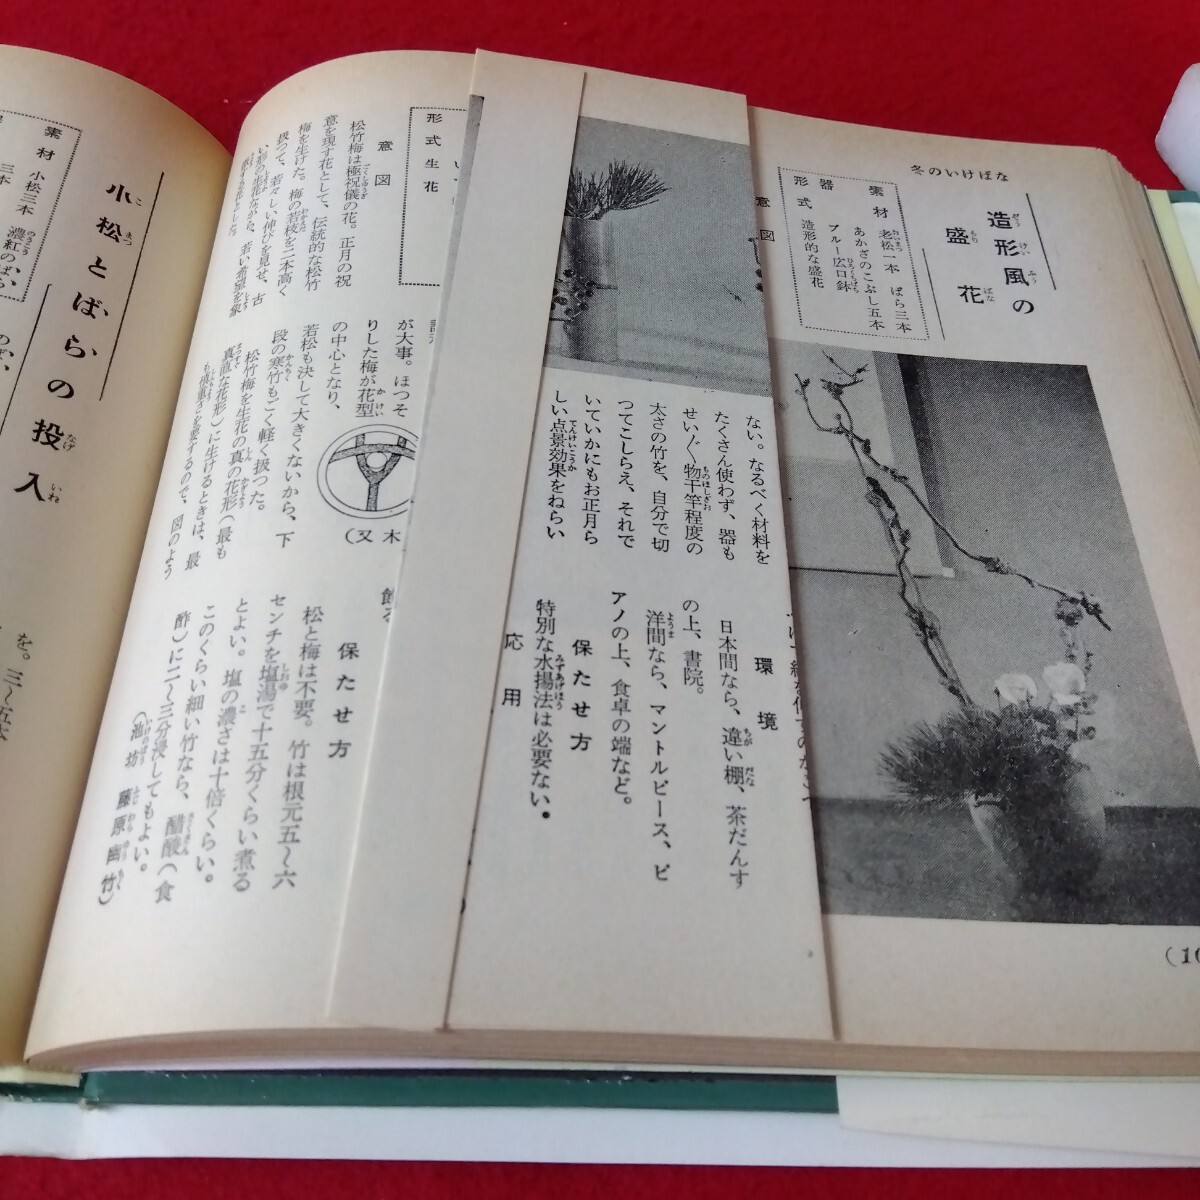 冬のいけばな
造形風の
盛花
素材 老松一本 ばら三本
あかざのこぶし五本
器 ブルー広口鉢
形式 造形的な盛花
意図
ない。なるべく材料を
たくさん使わず、器も
せい〲物干竿程度の
太さの竹を、自分で切
つてこしらえ、それで
いていかにもお正月ら
しい点景効果をねらい
環境
日本間なら、違い棚、茶だんす
の上、書院。
洋間なら、マントルピース、ピ
アノの上、食卓の端など。
保たせ方
特別な水揚法は必要ない。
応用
形式 生花
意図
松竹梅は極祝儀の花。正月の祝
意を現す花として、伝統的な松竹
梅を生けた。梅の若枝を二本高く
扱つて、若々しい伸びを見せ、古
い形の生花ながら、若い希望を象
徴する花とした。
が大事。ほつそ
りした梅が花型
の中心となり、
若松も決して大きくないから、下
段の寒竹もごく軽く扱つた。
松竹梅を生花の真の花形(最も
真直な花形)に生けるときは、最
も慎重さを要するので、図のよう
(又木
飾る
保たせ方
松と梅は不要。竹は根元五〜六
センチを塩湯で十五分くらい煮る
とよい。塩の濃さは十倍くらい。
このくらい細い竹なら、醋酸(食
酢)に二〜三分浸してもよい。
(池坊 藤原幽竹)
小松とばらの投入
素材 小松三本
三本 濃紅のばら
を。三〜五本
(10